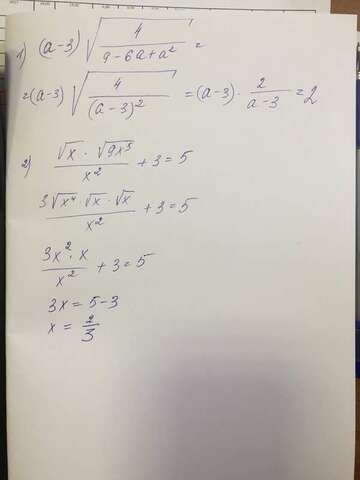 1) (a-3) √(4/(9-6a+a²)) =
= (a-3) √(4/(a-3)²) = (a-3) · 2/(a-3) = 2
2) (√x · √(9x⁵))/x² + 3 = 5
(3√x⁴ · √x · √x)/x² + 3 = 5
(3x² · x)/x² + 3 = 5
3x = 5-3
x = 2/3